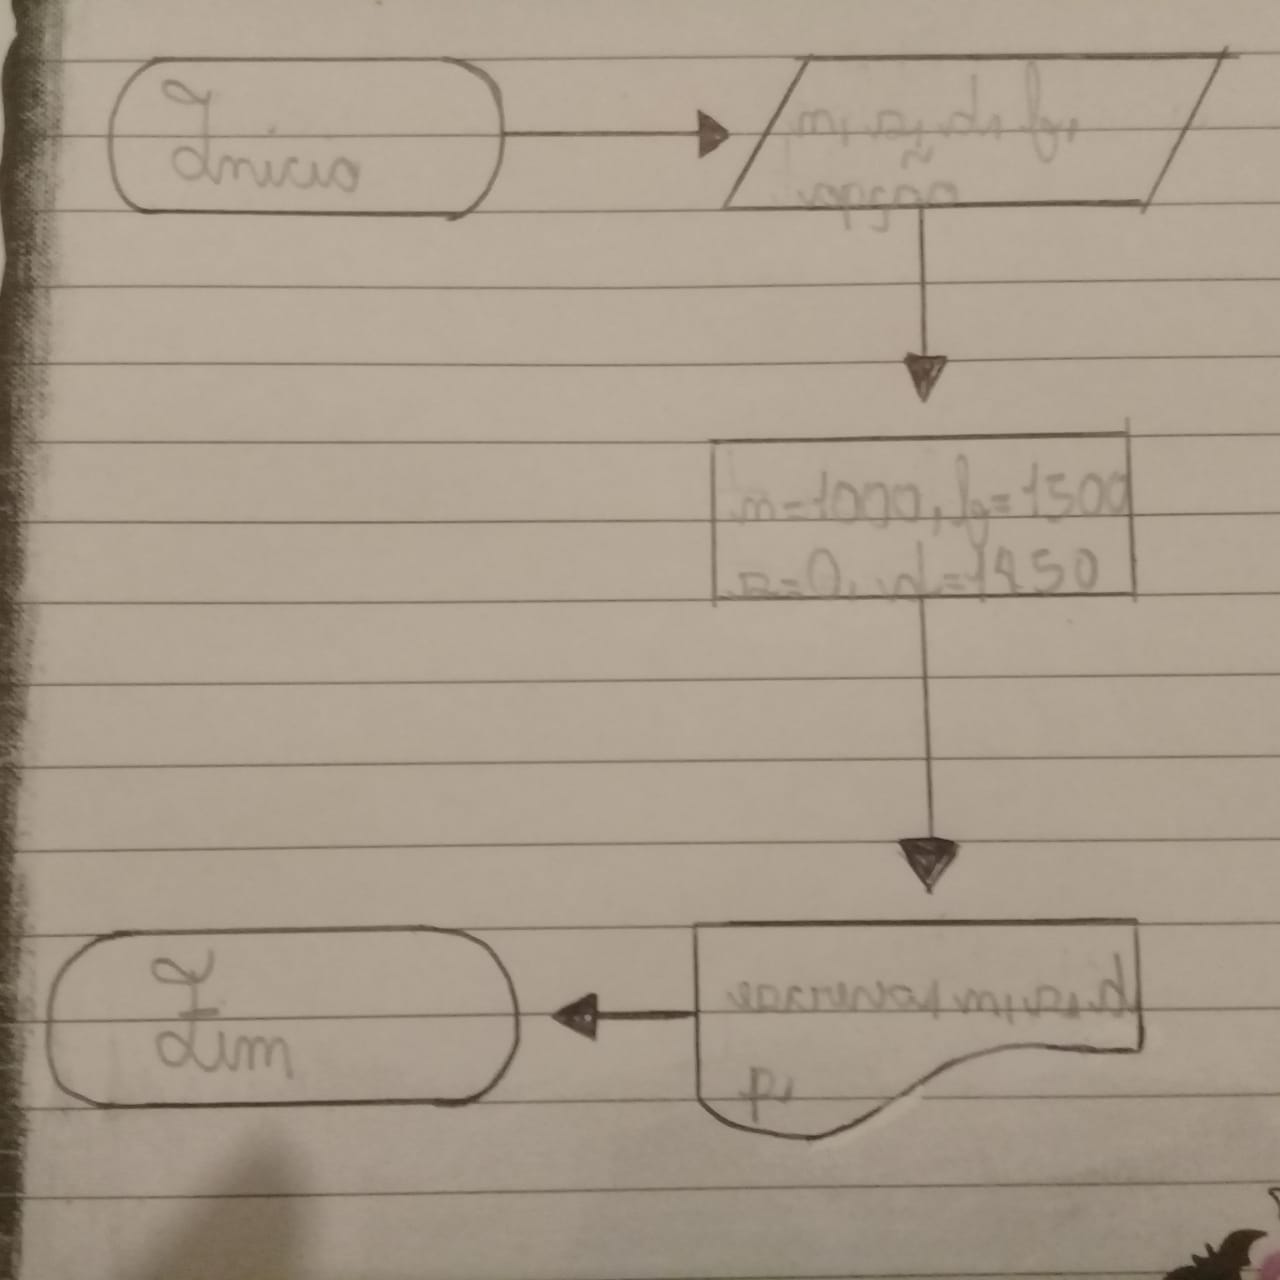 Início
m, s, d, f,
opção
m=1000, f=1500
s=0, d=1450
escreva, m, s, d
p,
Fim